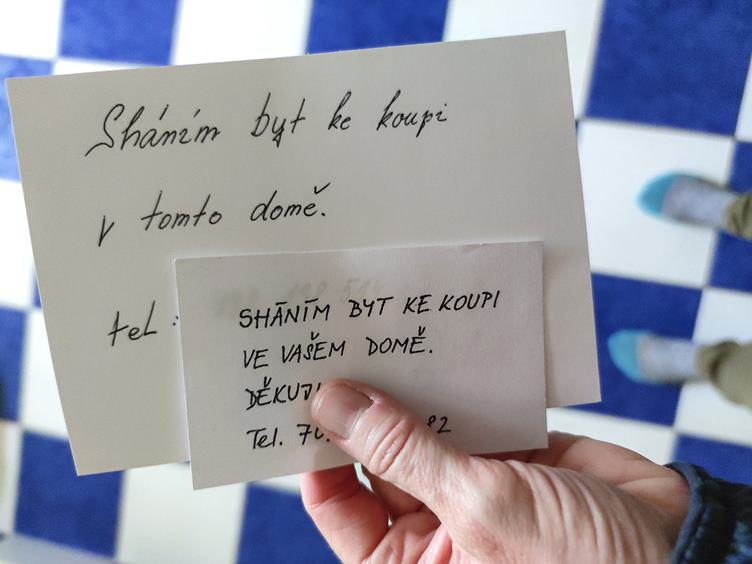 Sháním byt ke koupi
v tomto domě.
tel:
SHÁNÍM BYT KE KOUPI
VE VAŠEM DOMĚ.
DĚKUJI
Tel. 70 82